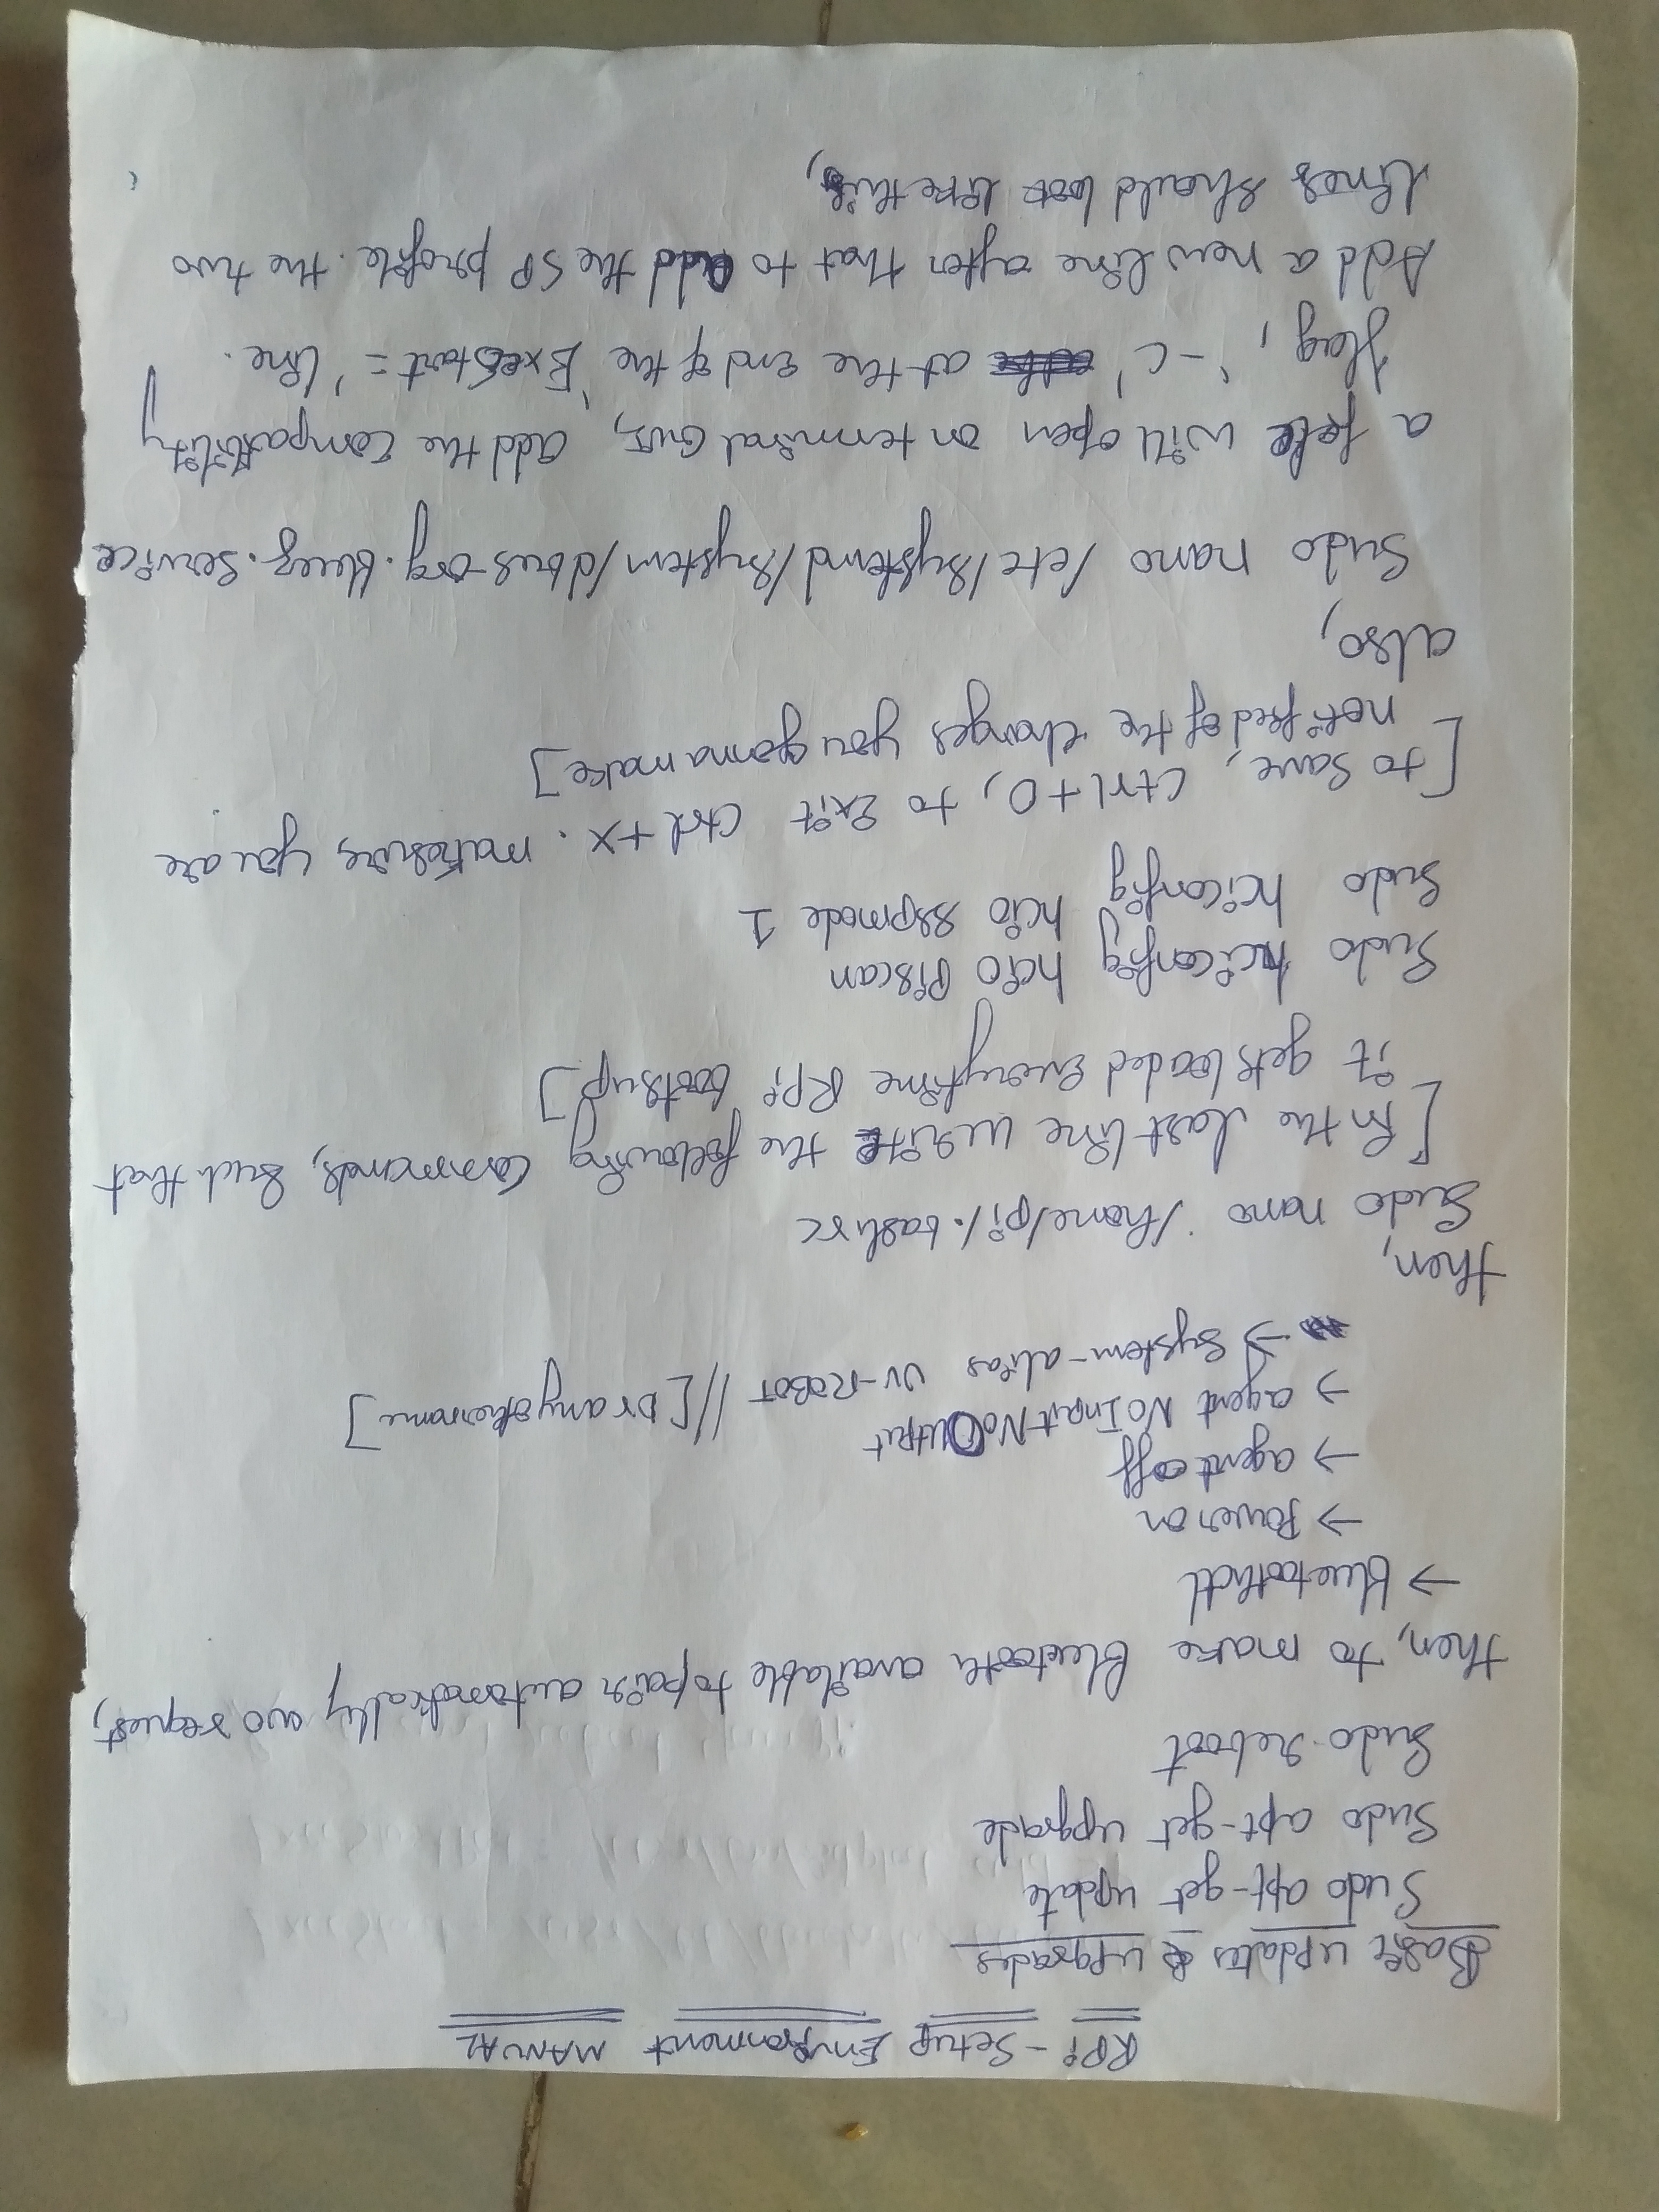 RPi - Setup Environment MANUAL
Basic updates & upgrades
Sudo apt-get update
Sudo apt-get upgrade
Sudo reboot
then, to make bluetooth available to pair automatically w/o request,
→ bluetoothctl
→ Power on
→ agent off
→ agent NoInputNoOutput
→ System-alias UV-ROBOT //[or any other name]
then,
Sudo nano /home/pi/.bashrc
[in the last line write the following commands, such that
it gets loaded everytime RPi bootsup]
Sudo hciconfig hci0 Piscan
Sudo hciconfig hci0 sspmode 1
[to save, Ctrl+O, to Exit Ctrl+X. makesure, you are
notified of the changes you gonna make]
also,
Sudo nano /etc/systemd/system/dbus-org.bluez.service
a file will open on terminal GUI, add the compatibility
flag, '-C' at the end of the 'ExecStart=' line.
Add a new line after that to add the SP profile. the two
lines should look like this,